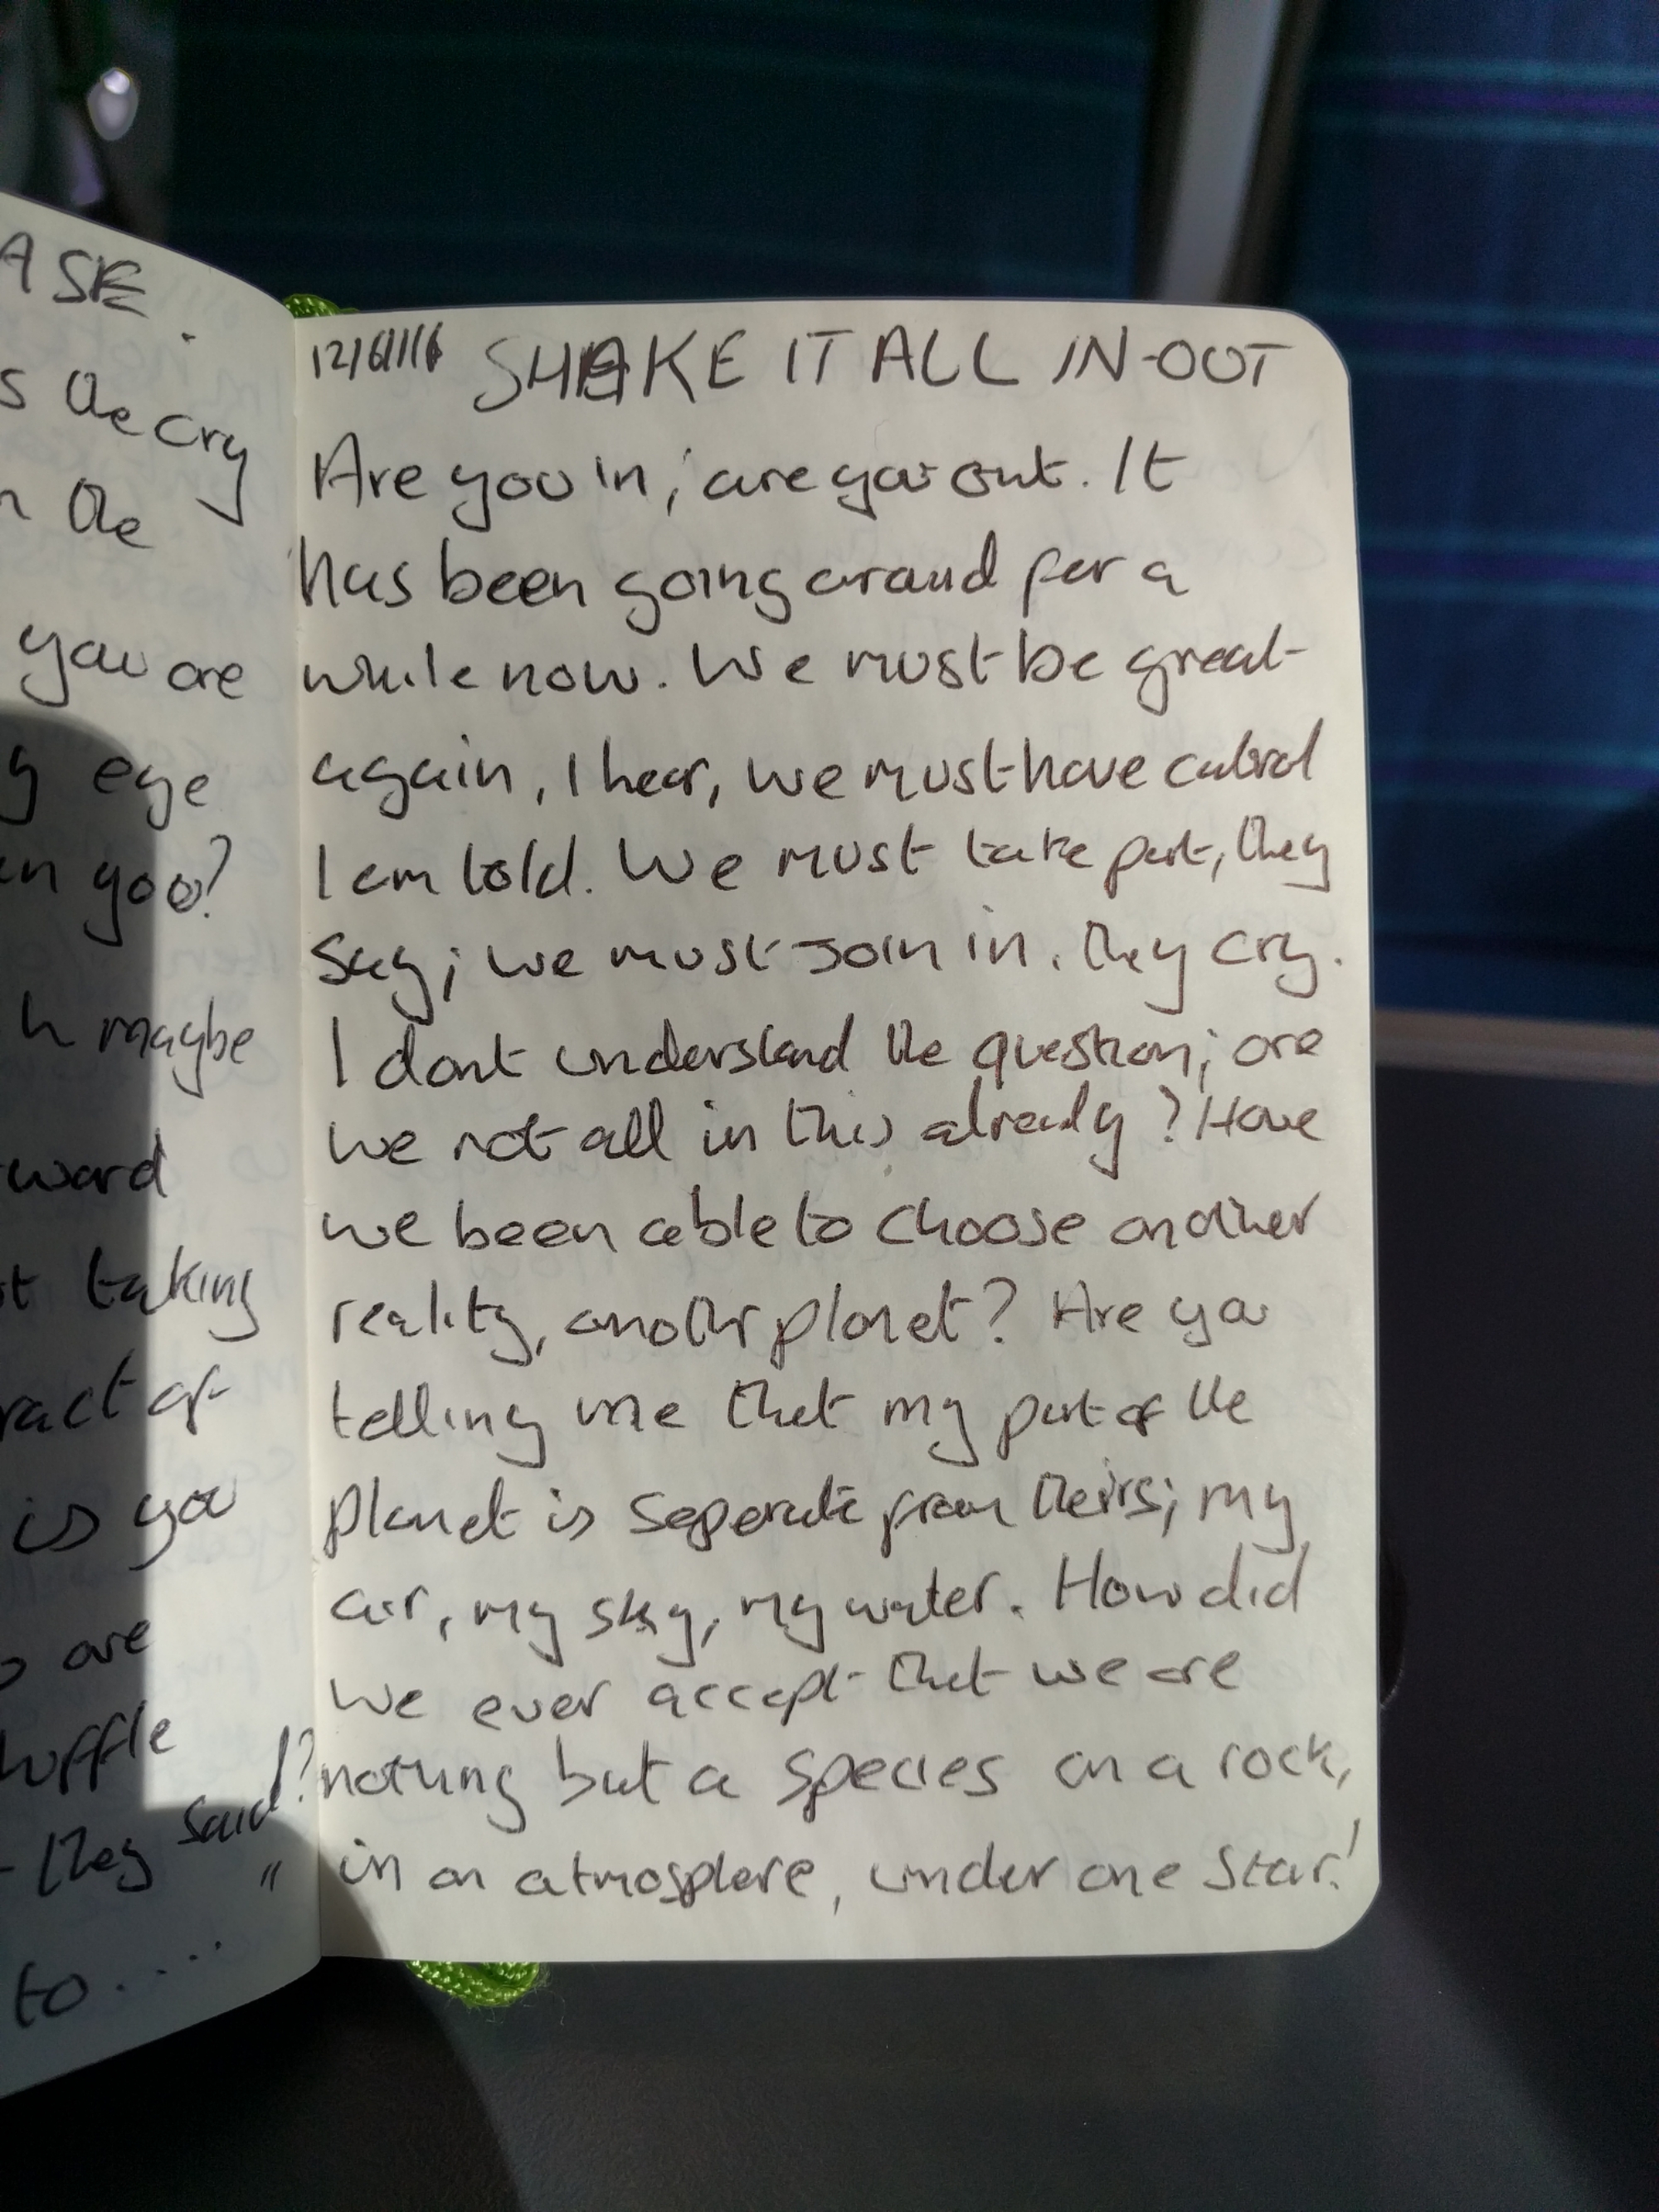 ASE.
s the cry
n the
you are
g eye
en you?
h maybe
ward
t taking
ract of
is you
o are
huffle
- they said!?
"
to....
12/6/16 SHAKE IT ALL IN-OUT
Are you in; are you out. It
has been going around for a
while now. We must be great
again, I hear, we must have control
I am told. We must take part, they
say; we must join in, they cry.
I dont understand the question; are
we not all in this already? Have
we been able to choose another
reality, another planet? Are you
telling me that my part of the
planet is seperate from theirs; my
air, my sky, my water. How did
we ever accept that we are
nothing but a species on a rock,
in an atmosphere, under one star!